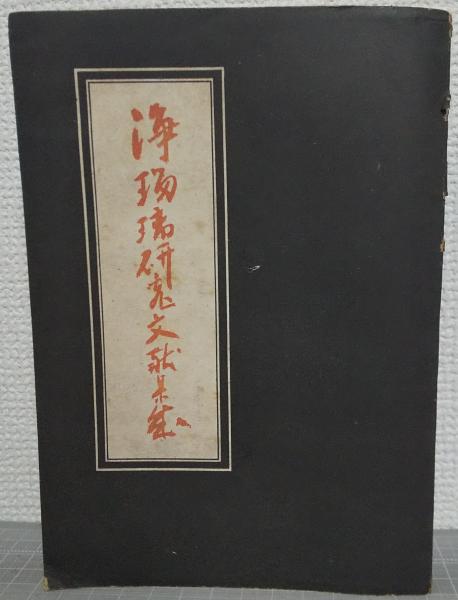 浄瑠璃研究文献集成